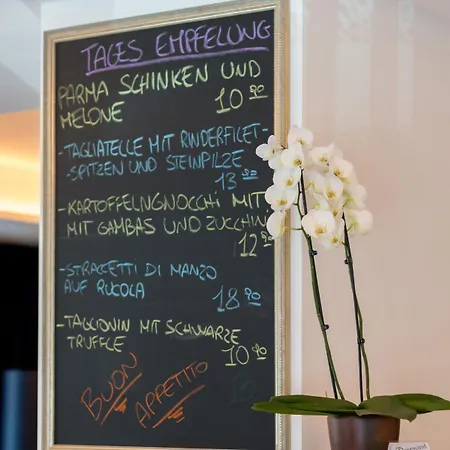 TAGES EMPFELUNG
PARMA SCHINKEN UND
MELONE 10 90
- TAGLIATELLE MIT RINDERFILET-
SPITZEN UND STEINPILZE
13 50
- KARTOFFELNGNOCCHI MIT
MIT GAMBAS UND ZUCCHIN
12 90
- STRACCETTI DI MANZO
AUF RUCOLA 18 90
- TAGLIONIN MIT SCHWARZE
TRUFFLE 10 90
BUON
APPETITO